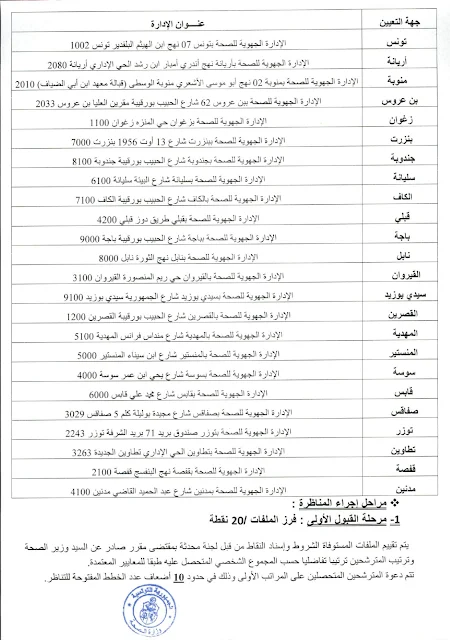 جهة التعيين عنــوان الإدارة
تونس الإدارة الجهوية للصحة بتونس 07 نهج ابن الهيثم البلفدير تونس 1002
أريانة الإدارة الجهوية للصحة بأريانة نهج أندري أمبار ابن رشد الحي الإداري أريانة 2080
منوبة الإدارة الجهوية للصحة بمنوبة 02 نهج أبو موسى الأشعري منوبة الوسطى (قبالة معهد ابن أبي الضياف) 2010
بن عروس الإدارة الجهوية للصحة ببن عروس 62 شارع الحبيب بورقيبة مقرين العليا بن عروس 2033
زغوان الإدارة الجهوية للصحة بزغوان حي المنتزه زغوان 1100
بنزرت الإدارة الجهوية للصحة ببنزرت شارع 13 أوت 1956 بنزرت 7000
جندوبة الإدارة الجهوية للصحة بجندوبة شارع الحبيب بورقيبة جندوبة 8100
سليانة الإدارة الجهوية للصحة بسليانة شارع البيئة سليانة 6100
الكاف الإدارة الجهوية للصحة بالكاف شارع الحبيب بورقيبة الكاف 7100
قبلي الإدارة الجهوية للصحة بقبلي طريق دوز قبلي 4200
باجة الإدارة الجهوية للصحة بباجة شارع الحبيب بورقيبة باجة 9000
نابل الإدارة الجهوية للصحة بنابل نهج الثورة نابل 8000
القيروان الإدارة الجهوية للصحة بالقيروان حي ريم المنصورة القيروان 3100
سيدي بوزيد الإدارة الجهوية للصحة بسيدي بوزيد شارع الجمهورية سيدي بوزيد 9100
القصرين الإدارة الجهوية للصحة بالقصرين شارع الحبيب بورقيبة القصرين 1200
المهدية الإدارة الجهوية للصحة بالمهدية شارع منداس فرانس المهدية 5100
المنستير الإدارة الجهوية للصحة بالمنستير شارع ابن سيناء المنستير 5000
سوسة الإدارة الجهوية للصحة بسوسة شارع يحي ابن عمر سوسة 4000
قابس الإدارة الجهوية للصحة بقابس شارع محمد علي قابس 6000
صفاقس الإدارة الجهوية للصحة بصفاقس شارع مجيدة بوليلة كلم 5 صفاقس 3029
توزر الإدارة الجهوية للصحة بتوزر صندوق بريد 71 بريد الشرفة توزر 2243
تطاوين الإدارة الجهوية للصحة بتطاوين الحي الإداري تطاوين الجديدة 3263
قفصة الإدارة الجهوية للصحة بقفصة نهج البنفسج قفصة 2100
مدنين الإدارة الجهوية للصحة بمدنين شارع عبد الحميد القاضي مدنين 4100
❖ مراحل إجراء المناظرة :
1- مرحلة القبول الأولى : فرز الملفات /20 نقطة
يتم تقييم الملفات المستوفاة الشروط وإسناد النقاط من قبل لجنة محدثة بمقتضى مقرر صادر عن السيد وزير الصحة
وترتيب المترشحين ترتيبا تفاضليا حسب المجموع الشخصي المتحصل عليه طبقا للمعايير المعتمدة.
تتم دعوة المترشحين المتحصلين على المراتب الأولى وذلك في حدود 10 أضعاف عدد الخطط المفتوحة للتناظر.
الجمهورية التونسية
وزارة الصحة